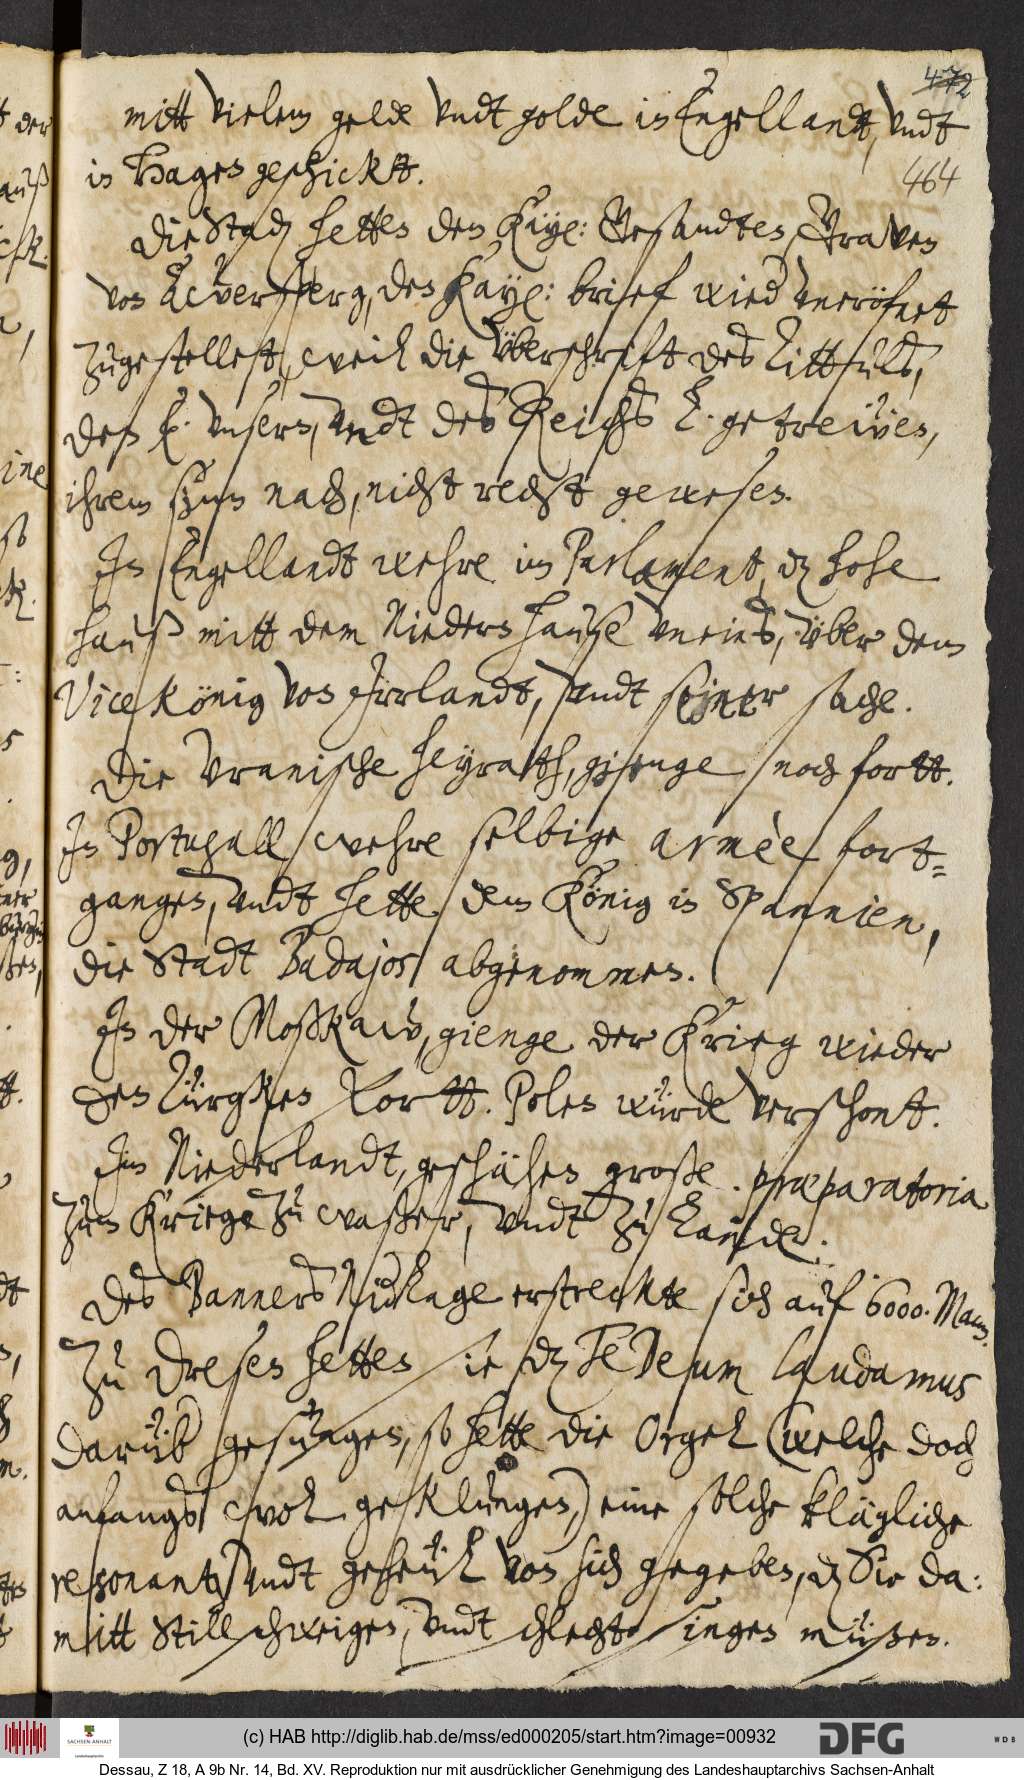 472
mitt vielem gelde vndt golde in Engellandt, vndt
464
in Hagen geschicktt.
Die Stadt hetten den Kaye: Gesandten Graven
von Aversperg, des Kaye: brief wied vneröfnet
zugestellet, weil die überschrift des Tittuls,
deß H. vnsern, vndt des Reichs L. getreüen,
ihrem sinn nach, nicht recht gewesen.
In Engellandt wehre im Parlament, dz hohe
hauß mitt dem Niedern hause vneins, über dem
Vicekönig von Irrlandt, vndt seiner sache.
Die Vranische heyrath, gienge noch fortt.
In Portugall wehre selbige armèe fort-
gangen, vndt hette dem König in Spannien,
die Stadt Badajos abgenommen.
In der Moßkaw, gienge der Krieg wieder
den Türgken fortt. Polen würde verschont.
Im Niederlandt, geschähen große præparatoria
zum Kriege zu waßer, vndt zu Lande.
Des Banners Niderlage erstreckte sich auf 6000. Mann.
Zu Dresen hetten sie dz Te Deum laudamus
darüb gesungen, so hette die Orgel (welche doch
anfangs wol geklungen,) eine solche klägliche
resonantz vndt geheül von sich gegeben, dz Sie da:
mitt stillschweigen, vndt schlecht singen müßen.
(c) HAB http://diglib.hab.de/mss/ed000205/start.htm?image=00932
SACHSEN-ANHALT
DFG
WDB
Dessau, Z 18, A 9b Nr. 14, Bd. XV. Reproduktion nur mit ausdrücklicher Genehmigung des Landeshauptarchivs Sachsen-Anhalt